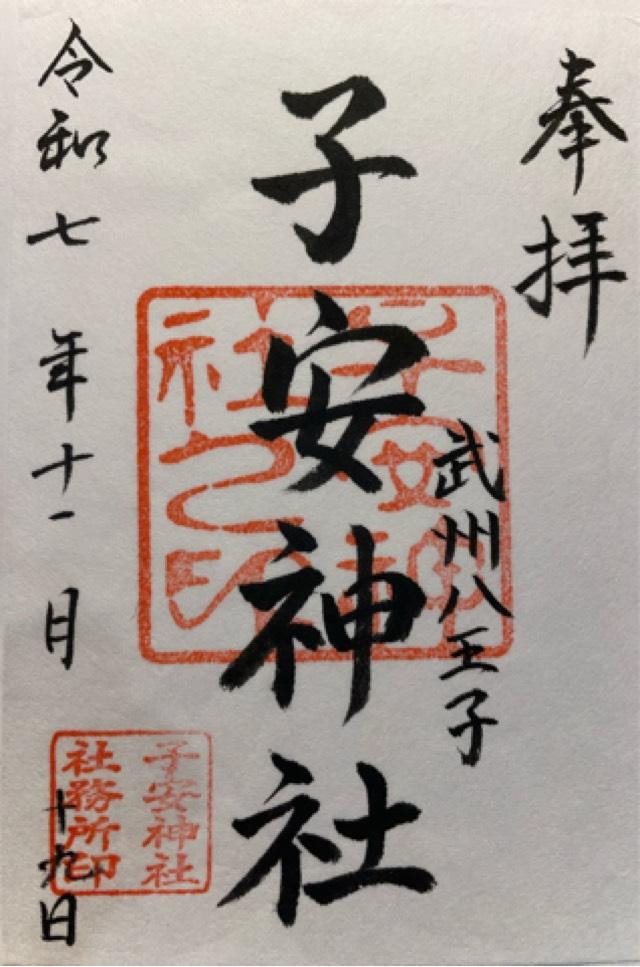 奉拝
武州八王子
子安神社
子安神
社之印
令和七年十一月十九日
子安神社
社務所印